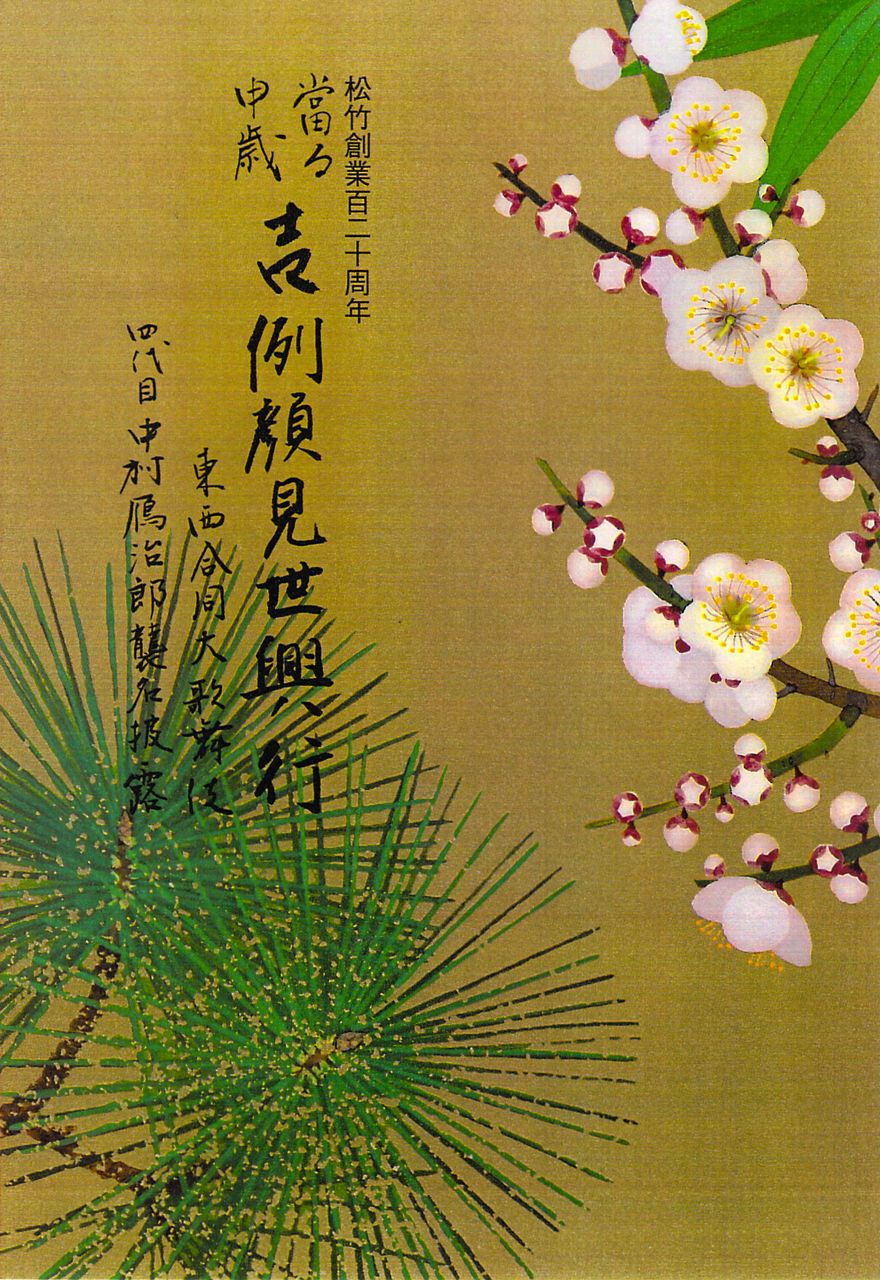 松竹創業百二十周年
當る
申歳
吉例顔見世興行
東西合同大歌舞伎
四代目中村鴈治郎襲名披露